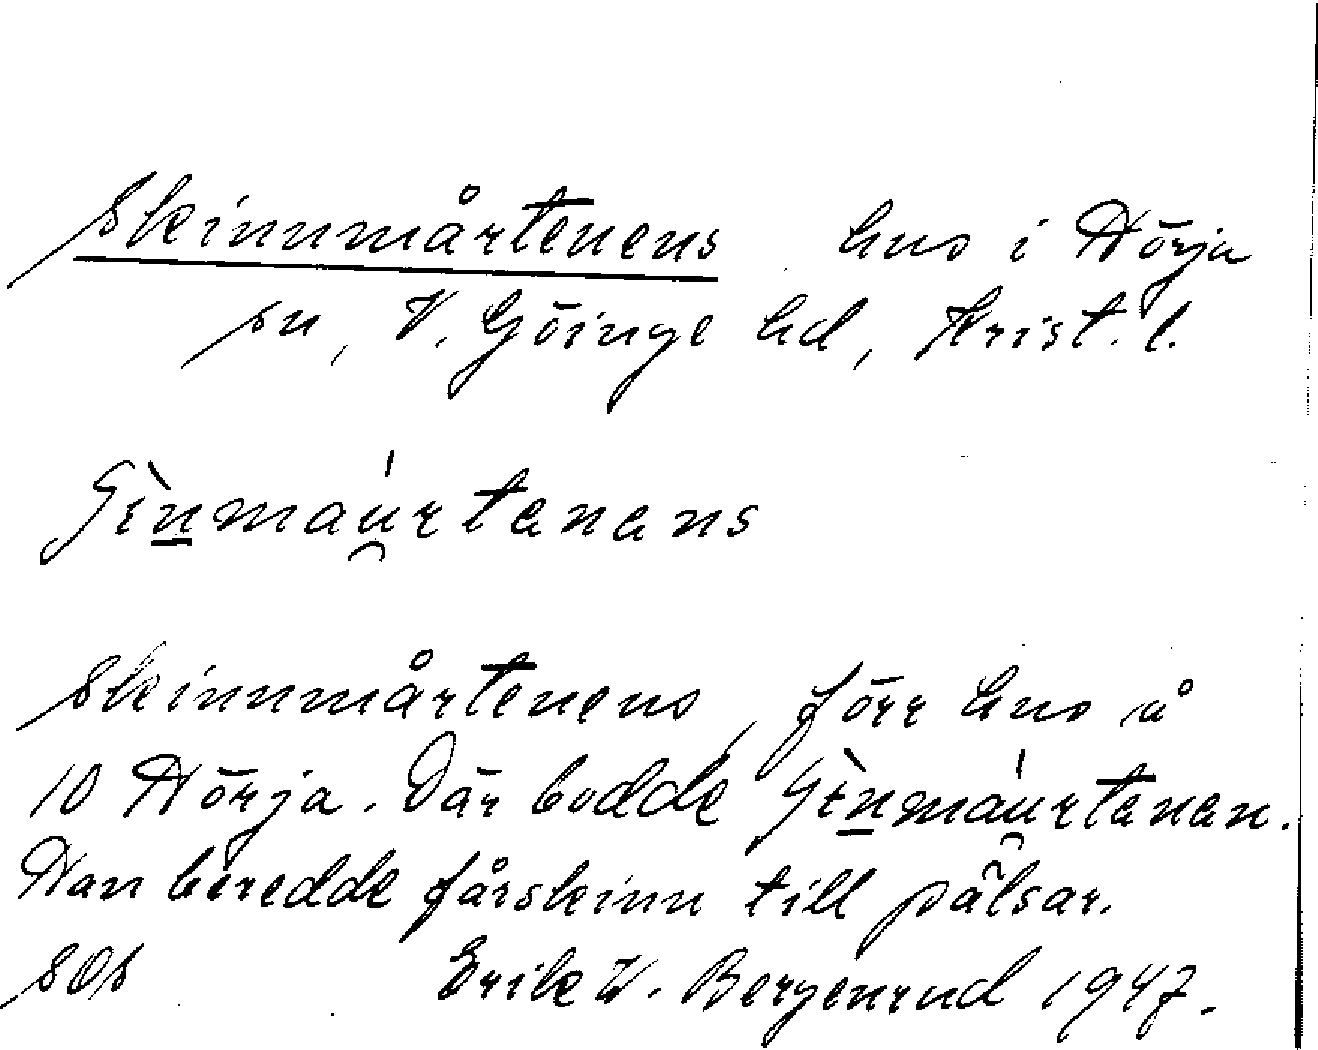 Skinnmårtenens hus i Hörja
sn, V. Göinge hd, Krist. l.
ʃinmáu̯rtanans
Skinnmårtenens, förr hus å
10 Hörja. Där bodde ʃinmáu̯rtanan.
Han beredde fårskinn till pälsar.
SOS Erik W. Bergenrud 1947.